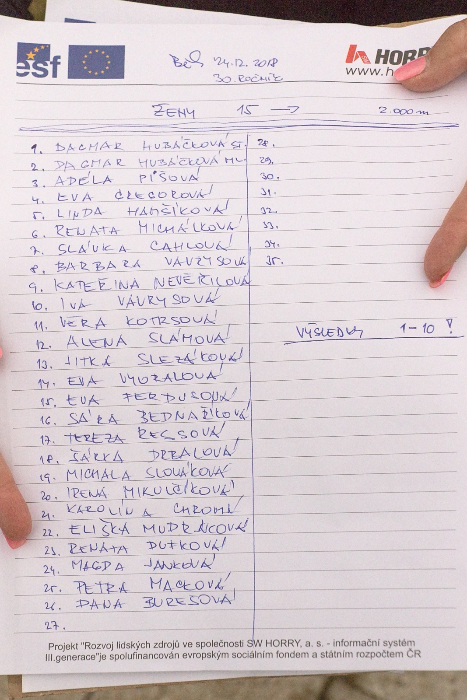 esf
Běh 24.12.2018
30. ROČNÍK
HORR
www.h
ŽENY 15 → 2.000 m
1. DAGMAR HUBÁČKOVÁ ST.
2. DAGMAR HUBÁČKOVÁ ML
3. ADÉLA PÍŠOVÁ
4. EVA GREGOROVÁ
5. LINDA HAMŠÍKOVÁ
6. RENATA MICHÁLKOVÁ
7. SLÁVKA CAHLOVÁ
8. BARBARA VAVRYSOVÁ
9. KATEŘINA NEVĚŘILOVÁ
10. IVA VÁVRYSOVÁ
11. VĚRA KOTRSOVÁ
12. ALENA SLÁMOVÁ
13. JITKA SLEZÁKOVÁ
14. EVA VYORALOVÁ
15. EVA FERDUSOVÁ
16. SÁRA BEDNAŘÍKOVÁ
17. TEREZA
18. ŠÁRKA DRBALOVÁ
19. MICHALA SLOVÁKOVÁ
20. IRENA MIKULČÍKOVÁ
21. KAROLÍNA CHROMÁ
22. ELIŠKA MUDRÁKOVÁ
23. RENATA DUTKOVÁ
24. MAGDA JANKOVÁ
25. PETRA MACKOVÁ
26. DANA BUREŠOVÁ
27.
28.
29.
30.
31.
32.
33.
34.
35.
VÝSLEDKY 1-10 !
Projekt "Rozvoj lidských zdrojů ve společnosti SW HORRY, a. s. - informační systém
III.generace"je spolufinancován evropským sociálním fondem a státním rozpočtem ČR